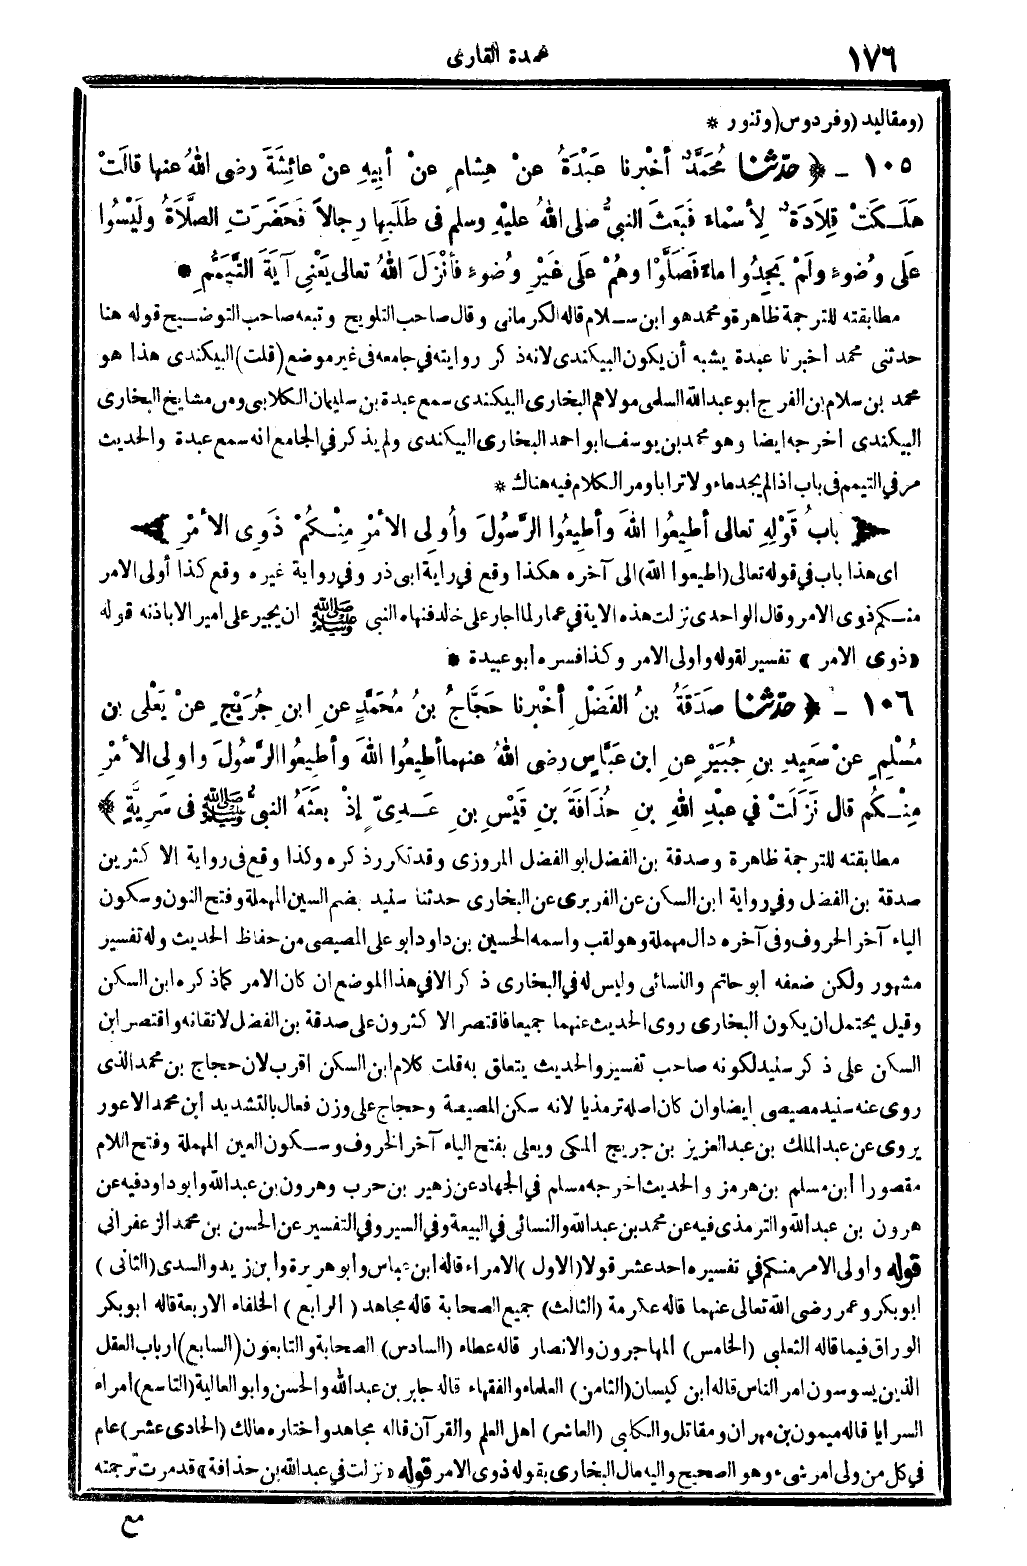 ١٧٦
عمدة القارى
(ومقاليد (وفردوس (وتنور *
١٠٥ ــ ﴿ حدّثنا مُحَمَّدٌ أخْبرنا عَبْدَةُ عنْ هِشامٍ عنْ أبِيهِ عنْ عائِشَةَ رضى اللهُ عنها قالَتْ
هَلَـكَتْ قِلَادَةٌ لِأسْماءَ فَبعَثَ النبيُّ صلى اللهُ عليْهِ وسلم فى طَلَبِها رِجالاً فَحَضَرَتِ الصَّلَاةُ ولَيْسُوا
علَى وُضوءٍ ولَمْ يَجِدُوا ماءً فَصَلَّوْا وهُمْ علَى غَيْرِ وُضوءٍ فأنْزَلَ اللهُ تعالى يَعْنِى آيَةَ التَّيَمُّمِ *
مطابقته للترجمة ظاهرة ومحمد هو ابن سـلام قاله الكرمانى وقال صاحب التلويح وتبعه صاحب التوضـيح قوله هنا
حدثنى محمد أخبرنا عبدة يشبه أن يكون البيكندى لانه ذكر روايته في جامعه فى غير موضع (قلت) البيكندى هذا هو
محمد بن سلام بن الفرج ابو عبد الله السلمى مولاهم البخارى البيكندى سمع عبدة بن سليمان الكلابى ومن مشايخ البخارى
البيكندى اخرجه ايضا وهو محمد بن يوسف ابو احمد البخارى البيكندى ولم يذكر في الجامع انه سمع عبدة والحديث
مر في التيمم فى باب اذا لم يجد ماء ولا ترابا ومر الكلام فيه هناك *
﴿ بابُ قَوْلِهِ تعالى أطيعُوا اللهَ وأطِيعُوا الرَّسُولَ وأُولِى الأمْرِ مِنْـكُمْ ذَوِى الأمْرِ ﴾
اى هذا باب في قوله تعالى (اطيعوا الله) الى آخره هكذا وقع في راية ابى ذر وفي رواية غيره وقع كذا أولى الامر
منـكم ذوى الامر وقال الواحدى نزلت هذه الاية في عمار لما اجار على خالد فنهاه النبى ﷺ ان يجير على امير الا باذنه قوله
«ذوى الامر» تفسير لقوله واولى الامر وكذا فسره أبو عبيدة *
١٠٦ ــ ﴿ حدّثنا صَدَقَةُ بنُ الفَضْلِ أخْبرنا حَجَّاجُ بنُ مُحَمَّدٍ عنِ ابنِ جُرَيْجٍ عنْ يَعْلَى بنِ
مُسْلِمٍ عنْ سَعِيدِ بنِ جُبَيْرٍ عنِ ابنِ عَبَّاسٍ رضى اللهُ عنهما أطِيعُوا اللهَ وأطِيعُوا الرَّسُولَ واولِى الأمْرِ
مِنْـكُم قال نَزَلَتْ في عبْدِ اللهِ بنِ حُذَافَةَ بنِ قَيْسِ بنِ عَـدِىّ إذْ بعَثَهُ النبيُّ ﷺ فى سَرِيَّةٍ ﴾
مطابقته للترجمة ظاهرة وصدقة بن الفضل ابو الفضل المروزى وقد تكرر ذكره وكذا وقع فى رواية الاكثرين
صدقة بن الفضل وفي رواية ابن السكن عن الفربرى عن البخارى حدثنا سنيد بضم السين المهملة وفتح النون وسكون
الياء آخر الحروف وفى آخره دال مهملة وهو لقب واسمه الحسين بن داود ابو على المصيصى من حفاظ الحديث وله تفسير
مشهور ولكن ضعفه أبو حاتم والنسائى وليس له في البخارى ذكر الا في هذا الموضع ان كان الامر كما ذكره ابن السكن
وقيل يحتمل ان يكون البخارى روى الحديث عنهما جميعا فاقتصر الاكثرون على صدقة بن الفضل لاتقانه واقتصر ابن
السكن على ذكر سنيد لكونه صاحب تفسيز والحديث يتعلق به قلت كلام ابن السكن اقرب لان حجاج بن محمد الذى
روى عنه سنيد مصيصى ايضا وان كان اصله ترمذيا لانه سكن المصيصة وحجاج على وزن فعال بالتشديد ابن محمد الاعور
يروى عن عبد الملك بن عبد العزيز بن جريج المكى ويعلى بفتح الياء آخر الحروف وسـكون العين المهملة وفتح اللام
مقصورا ابن مسلم بن هرمز والحديث اخرجه مسلم في الجهاد عن زهير بن حرب وهرون بن عبد الله وابو داود فيه عن
هرون بن عبد الله والترمذى فيه عن محمد بن عبد الله والنسائى في البيعة وفي السير وفي التفسير عن الحسن بن محمد الزعفرانى
قوله واولى الامر منكم في تفسيره احد عشر قولا (الاول) الامراء قاله ابن عباس وابو هريرة وابن زيد والسدى (الثانى)
ابو بكر وعمر رضى الله تعالى عنهما قاله عكرمة (الثالث) جميع الصحابة قاله مجاهد (الرابع) الخلفاء الاربعة قاله ابو بكر
الوراق فيما قاله الثعلبى (الخامس) المهاجرون والانصار قاله عطاء (السادس) الصحابة والتابعون (السابع) ارباب العقل
الذين يسوسون امر الناس قاله ابن كيسان (الثامن) العلماء والفقهاء قاله جابر بن عبد الله والحسن وابو العالية (التاسع) امراء
السرايا قاله ميمون بن مهران ومقاتل والكلبى (العاشر) اهل العلم والقرآن قاله مجاهد واختاره مالك (الحادى عشر) عام
في كل من ولى امر شىء وهو الصحيح واليه مال البخارى بقوله ذوى الامر قوله «نزلت في عبد الله بن حذافة» قد مرت ترجمته
مع